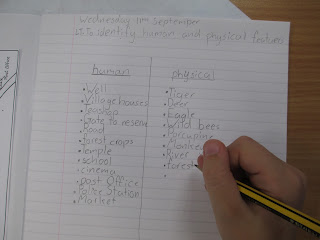 Wednesday 11th September
L.I. To identify human and physical features
human
physical
Well
Village houses
Tea shop
Gate to reserve
Road
Forest crops
Temple
School
cinema
Post Office
Police Station
Market
Tiger
Deer
Eagle
Wild bees
Porcupine
Monkeys
River
forest